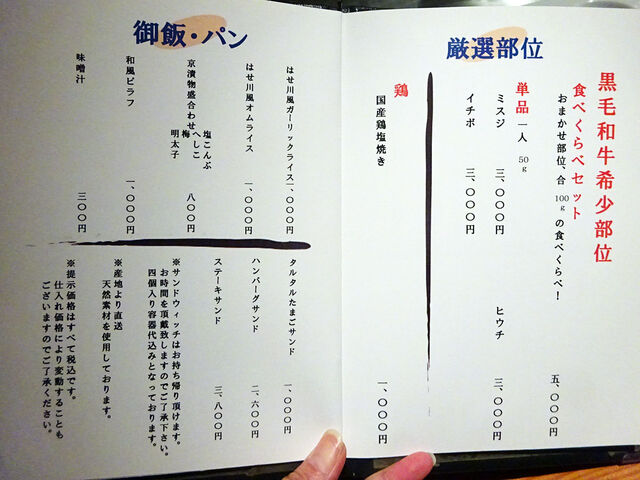 厳選部位
黒毛和牛希少部位
食べくらべセット
おまかせ部位、合100gの食べくらべ! 五、〇〇〇円
単品 一人 50g
ミスジ 三、〇〇〇円
ヒウチ 三、〇〇〇円
イチボ 三、〇〇〇円
鶏
国産鶏塩焼き 一、〇〇〇円
御飯・パン
はせ川風ガーリックライス 一、〇〇〇円
はせ川風オムライス 一、〇〇〇円
京漬物盛合わせ 八〇〇円
塩こんぶ
へしこ
梅
明太子
和風ピラフ 一、〇〇〇円
味噌汁 三〇〇円
タルタルたまごサンド 一、〇〇〇円
ハンバーグサンド 二、六〇〇円
ステーキサンド 三、八〇〇円
※サンドウィッチはお持ち帰り頂けます。
お時間を頂戴致しますのでご了承下さい。
四個入り容器代込みとなっております。
※産地より直送
天然素材を使用しております。
※提示価格はすべて税込です。
仕入れ価格により変動することも
ございますのでご了承ください。